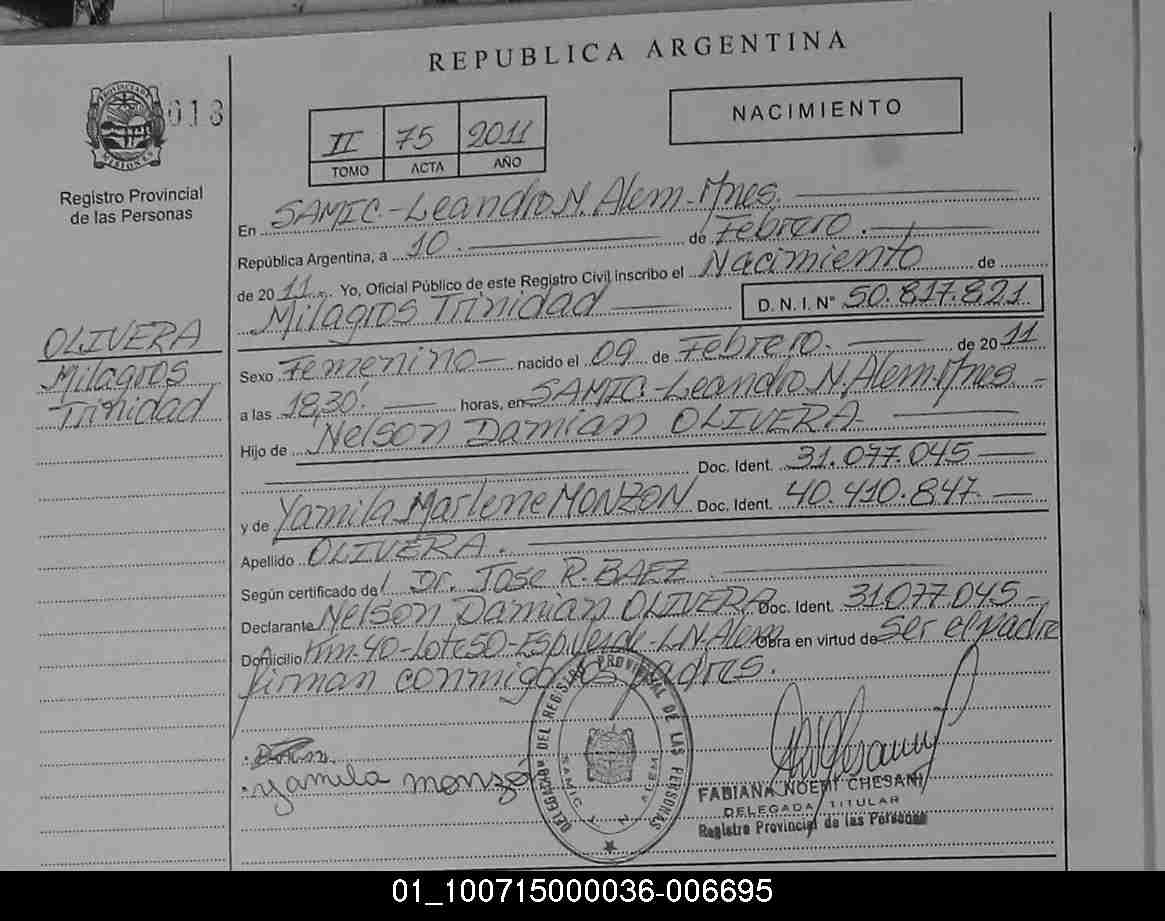 REPUBLICA ARGENTINA
PROVINCIA DE MISIONES
013
Registro Provincial
de las Personas
NACIMIENTO
II 75 2011
TOMO ACTA AÑO
En SAMIC-Leandro N. Alem-Mnes.
República Argentina, a 10. de Febrero.
de 2011. Yo, Oficial Público de este Registro Civil inscribo el Nacimiento de
Milagros Trinidad D. N. I. N° 50.817.821
OLIVERA
Milagros
Trinidad
Sexo Femenino nacido el 09 de Febrero. de 2011
a las 18,30. horas, en SAMIC-Leandro N. Alem.Mnes
Hijo de Nelson Damian OLIVERA
Doc. Ident. 31.077.045
y de Yamila Marlene MONZON Doc. Ident. 40.410.847.
Apellido OLIVERA.
Según certificado del Dr. Jose R. BAEZ
Declarante Nelson Damian OLIVERA Doc. Ident. 31.077.045-
Domicilio Km.40-Lote 50-Esp. Verde-L.N.Alem Obra en virtud de Ser el padre
firman conmigo los padres.
Yamila monzón
DELEGACION DEL REGISTRO PROVINCIAL DE LAS PERSONAS
SAMIC L N ALEM
FABIANA NOEMI CHESANI
DELEGADA TITULAR
Registro Provincial de las Personas
01_100715000036-006695